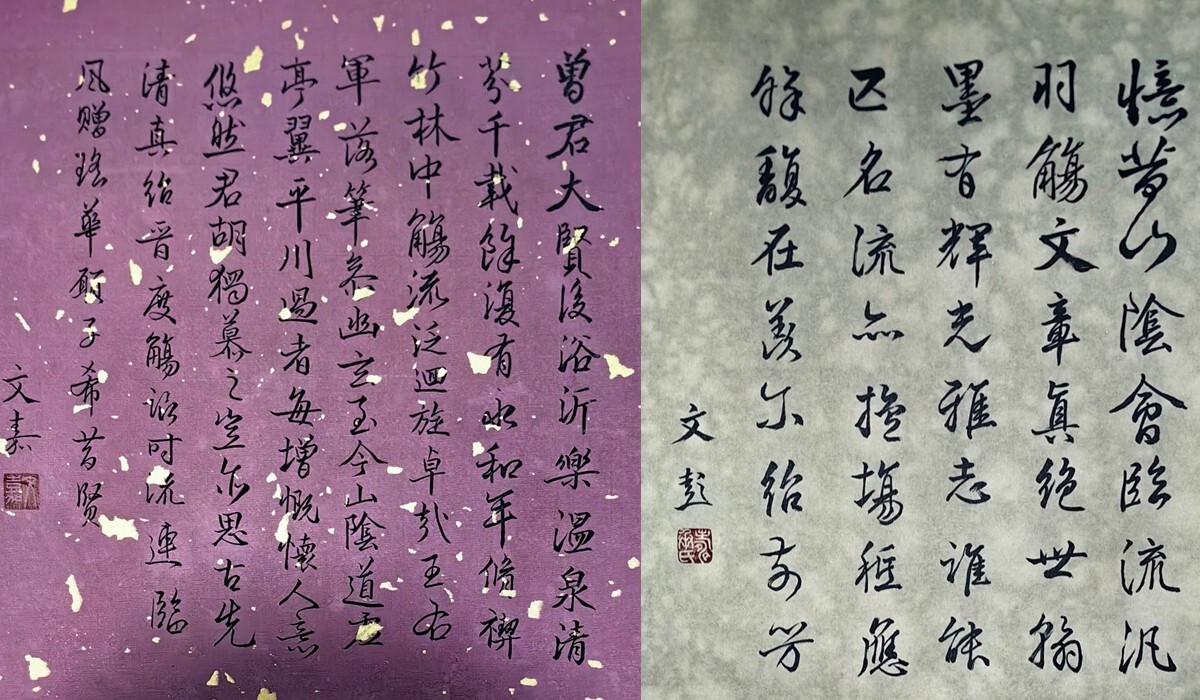 憶昔山陰會臨流汎
羽觴文章眞絕世翰
墨有輝光雅志誰能
匹名流亦擅場秪應
餘馥在羨尔紹前芳
文彭
曾君大賢後浴沂樂溫泉清
芬千載餘復有永和年脩禊
竹林中觴流泛迴旋卓哉王右
軍落筆參幽玄至今山陰道雲
亭翼平川過者每增慨懷人意
悠然君胡獨慕之豈亦思古先
清真紹晉度觴詠时流連臨
風贈瑤華願子希昔賢
文嘉